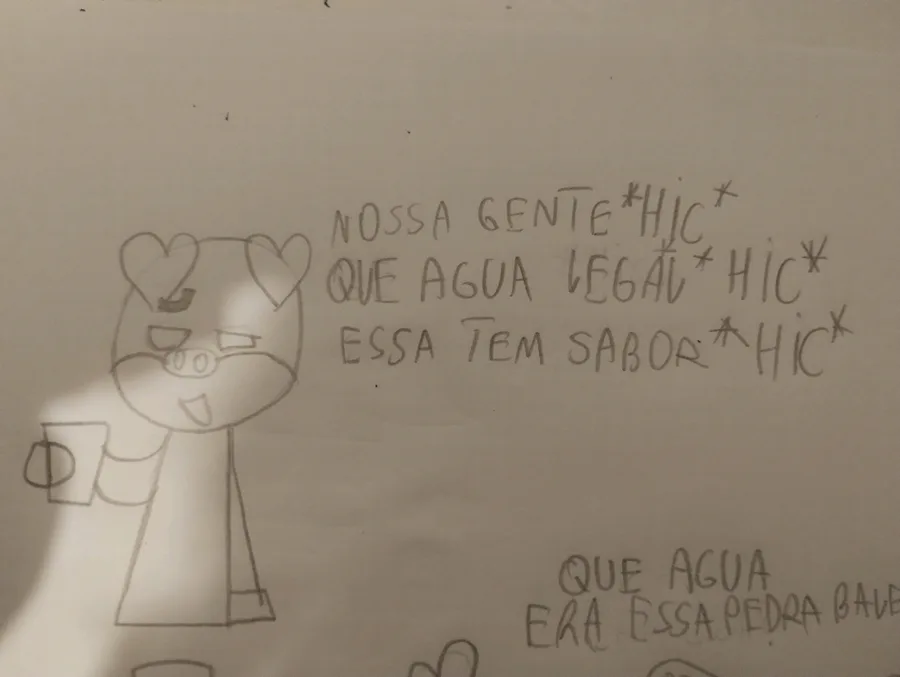 NOSSA GENTE *HIC*
QUE AGUA LEGAL *HIC*
ESSA TEM SABOR *HIC*
QUE AGUA
ERA ESSA PEDRA